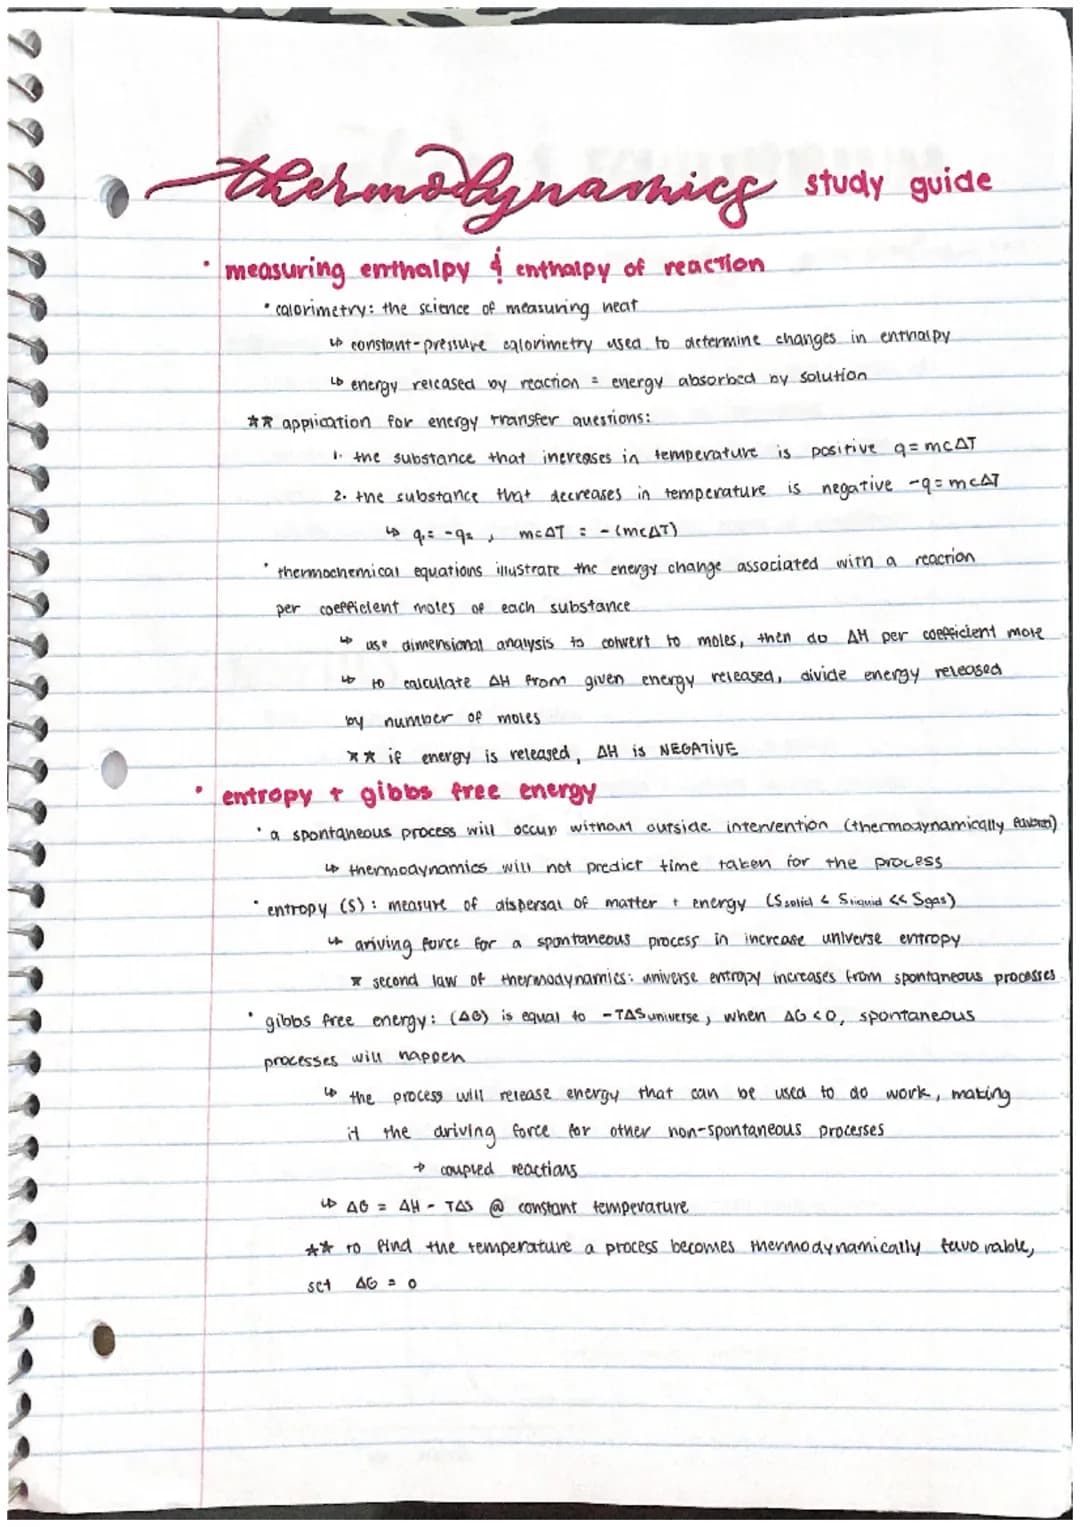 thermodynamics study guide
• measuring enthalpy & enthalpy of reaction
• calorimetry: the science of measuring heat
↳ constant-pressure calorimetry used to determine changes in enthalpy
↳ energy released by reaction = energy absorbed by solution
** application for energy transfer questions:
1. the substance that increases in temperature is positive q = mcΔT
2. the substance that decreases in temperature is negative -q = mcΔT
↳ q₁ = -q₂, mcΔT = -(mcΔT)
• thermochemical equations illustrate the energy change associated with a reaction
per coefficient moles of each substance
↳ use dimensional analysis to convert to moles, then do ΔH per coefficient mole
↳ to calculate ΔH from given energy released, divide energy released
by number of moles
** if energy is released, ΔH is NEGATIVE
• entropy + gibbs free energy
• a spontaneous process will occur without outside intervention (thermodynamically favored)
↳ thermodynamics will not predict time taken for the process
• entropy (S): measure of dispersal of matter + energy (Ssolid < Sliquid << Sgas)
↳ driving force for a spontaneous process in increase universe entropy
* second law of thermodynamics: universe entropy increases from spontaneous processes
• gibbs free energy: (ΔG) is equal to -TΔSuniverse, when ΔG < 0, spontaneous
processes will happen
↳ the process will release energy that can be used to do work, making
it the driving force for other non-spontaneous processes
→ coupled reactions
↳ ΔG = ΔH - TΔS @ constant temperature
** to find the temperature a process becomes thermodynamically favorable,
set ΔG = 0